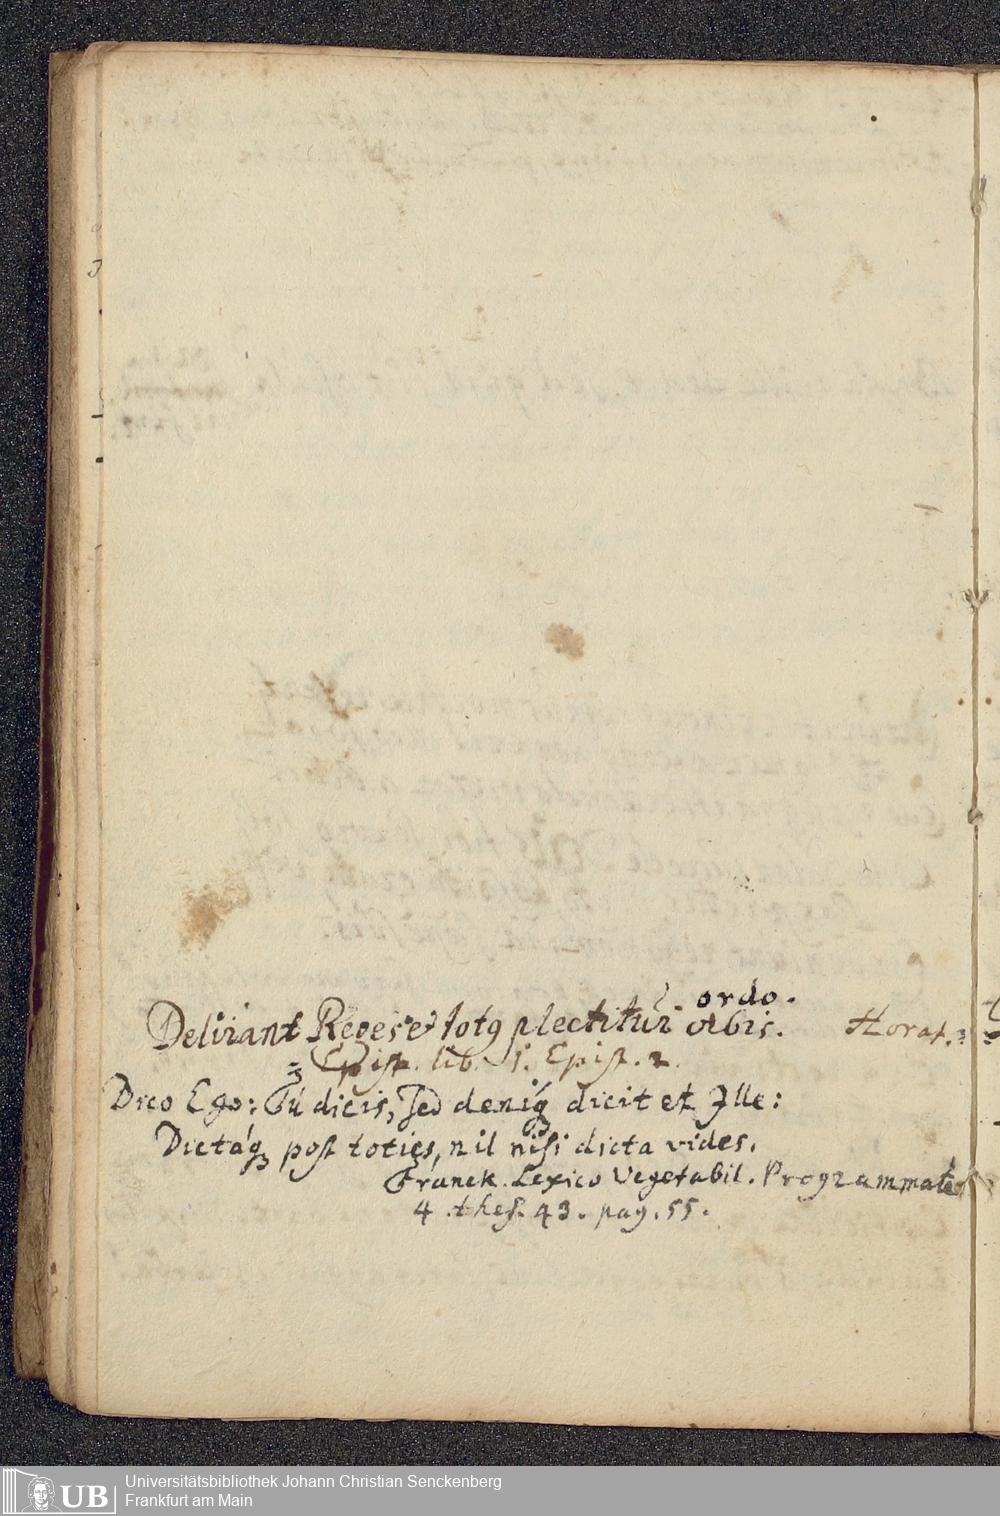 ordo.
Delirant Reges et totq plectitur orbis. Horat.
Epist. lib. 1. Epist. 2.
Dico Ego: Tú dicis, sed deniq́ꝫ dicit et Ille:
Dictáqꝫ post toties, nil nisi dicta vides.
Franck. Lexico Vegetabil. Programmate
4 . thes. 43. pag. 55.
Universitätsbibliothek Johann Christian Senckenberg
Frankfurt am Main
UB